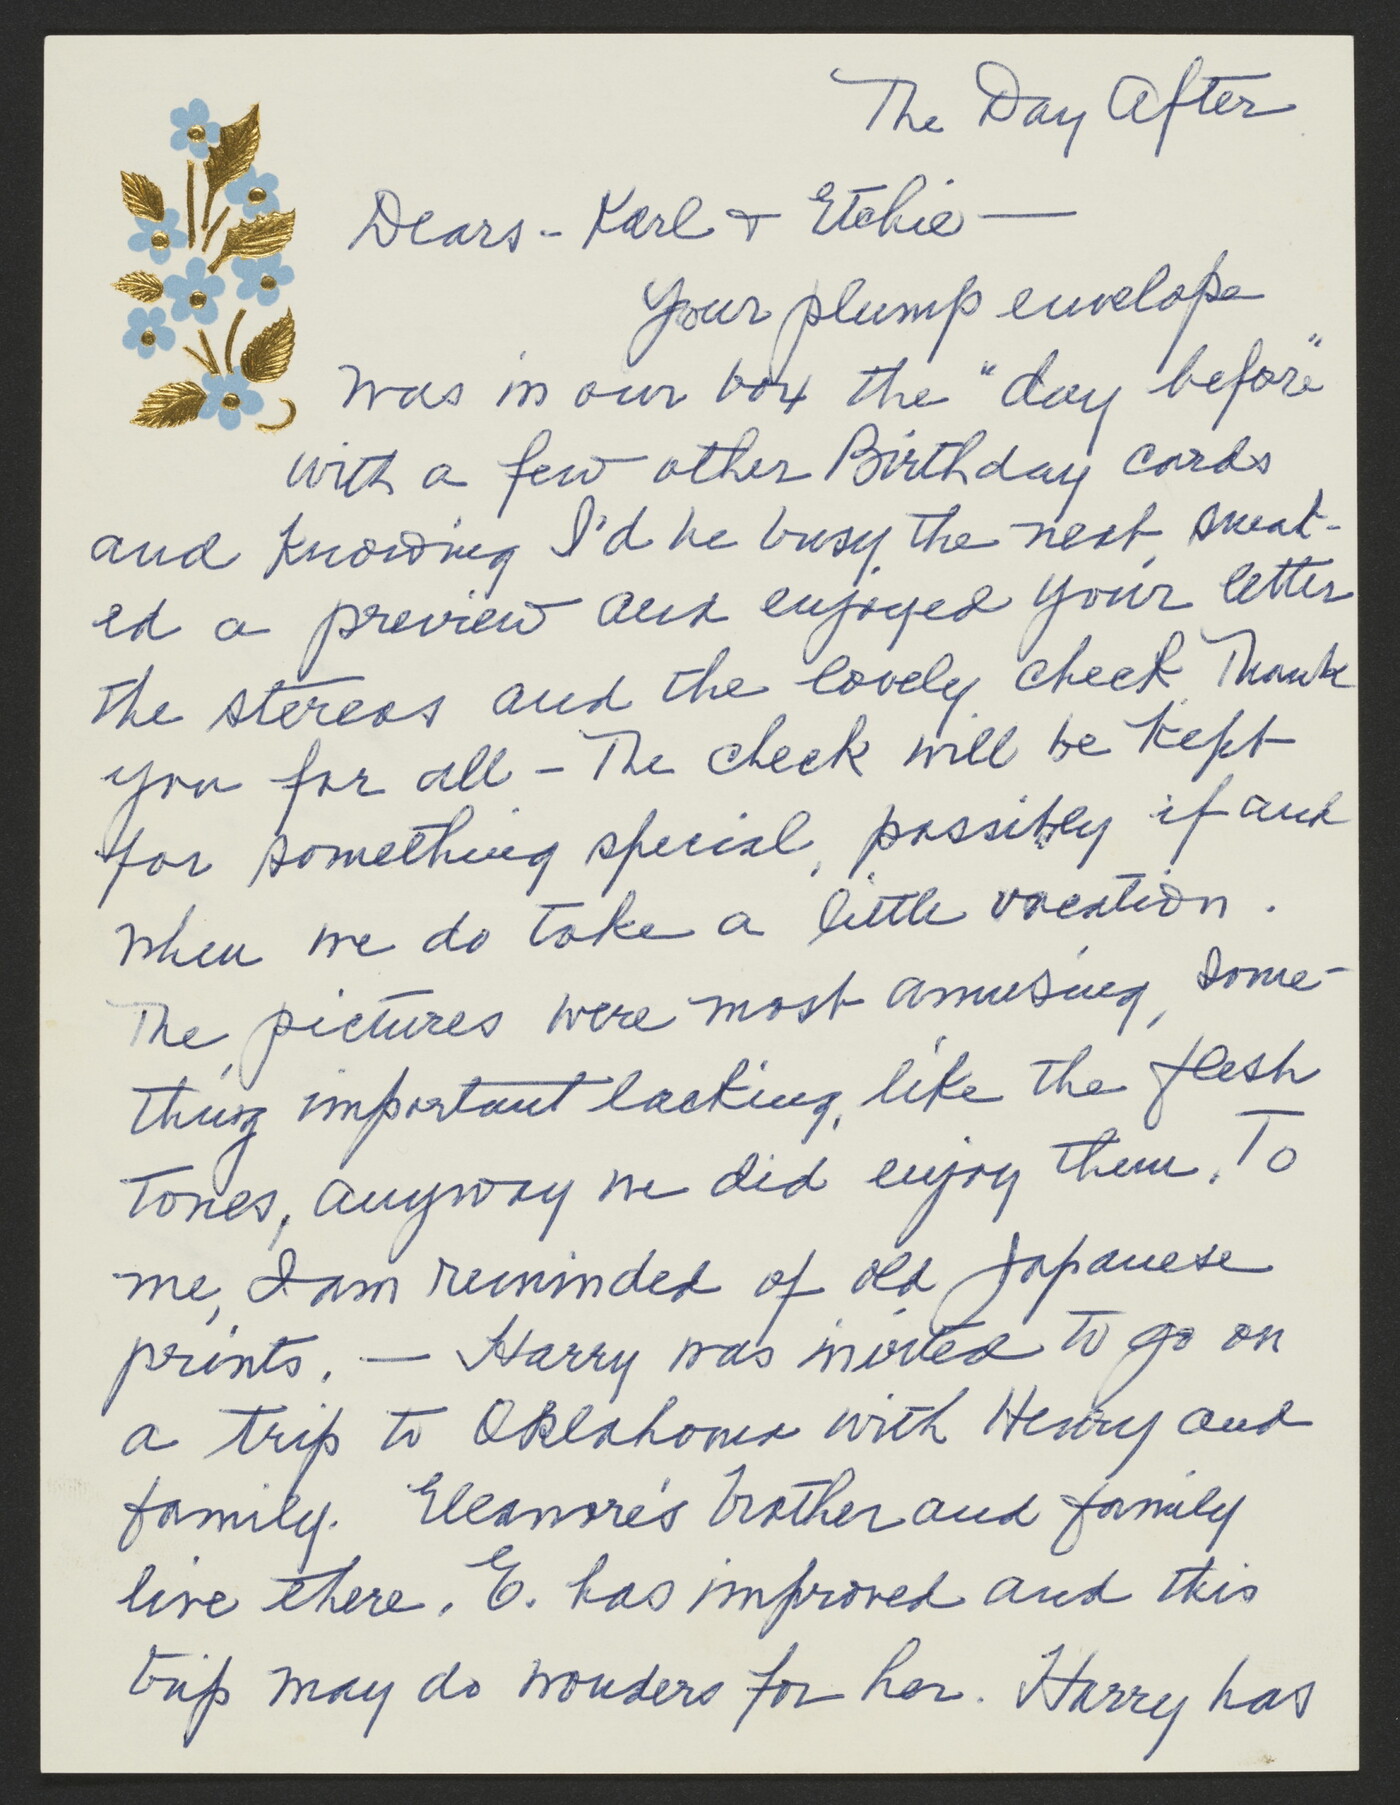 The Day After
Dears - Karl + Etchie —
Your plump envelope
was in our box the "day before"
with a few other Birthday cards
and knowing I'd be busy the next, sneak-
ed a preview and enjoyed your letter
the stereos and the lovely check. Thank
you for all - The check will be kept
for something special, possibly if and
when we do take a little vacation.
The pictures were most amusing, some-
thing important lacking, like the flesh
tones, anyway we did enjoy them. To
me, I am reminded of old Japanese
prints. — Harry was invited to go on
a trip to Oklahoma with Henry and
family. Eleanore's brother and family
live there. E. has improved and this
trip may do wonders for her. Harry has